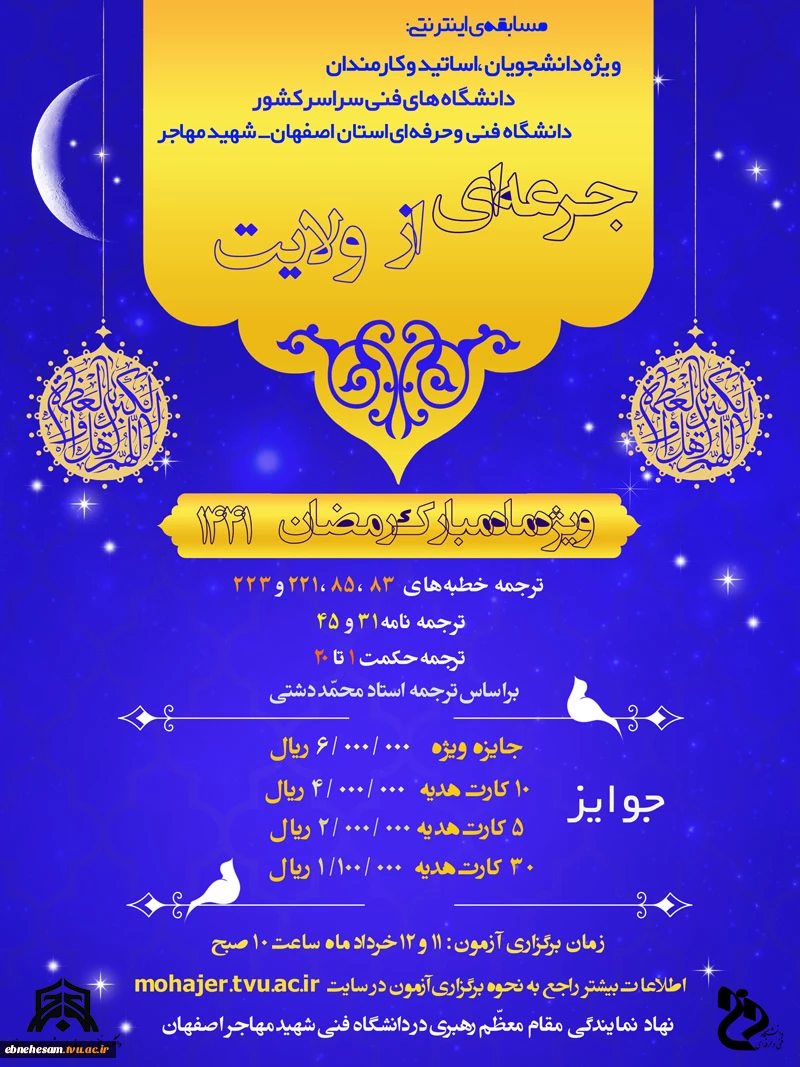 مسابقه‌ی اینترنتی:
ویژه دانشجویان ،اساتید و کارمندان
دانشگاه های فنی سراسر کشور
دانشگاه فنی و حرفه ای استان اصفهان_ شهید مهاجر
جرعه‌ای از ولایت
ویژه ماه مبارک رمضان ۱۴۴۱
ترجمه خطبه های ۸۳ ،۸۵ ،۲۲۱ و ۲۲۳
ترجمه نامه ۳۱ و ۴۵
ترجمه حکمت ۱ تا ۲۰
براساس ترجمه استاد محمّد دشتی
جوایز
جایزه ویژه ۶/۰۰۰/۰۰۰ ریال
۱۰ کارت هدیه ۴/۰۰۰/۰۰۰ ریال
۵ کارت هدیه ۲/۰۰۰/۰۰۰ ریال
۳۰ کارت هدیه ۱/۱۰۰/۰۰۰ ریال
زمان برگزاری آزمون : ۱۱ و ۱۲ خرداد ماه ساعت ۱۰ صبح
اطلاعات بیشتر راجع به نحوه برگزاری آزمون در سایت mohajer.tvu.ac.ir
نهاد نمایندگی مقام معظّم رهبری در دانشگاه فنی شهید مهاجر اصفهان
ebnehesam.tvu.ac.ir